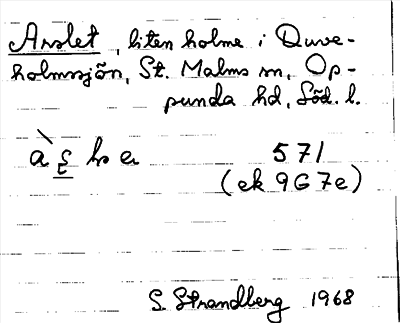 Arslet, liten holme i Duve-
holmssjön, St. Malms sn, Op-
punda hd, Söd. l.
571
(ek 9G7e)
S. Strandberg 1968